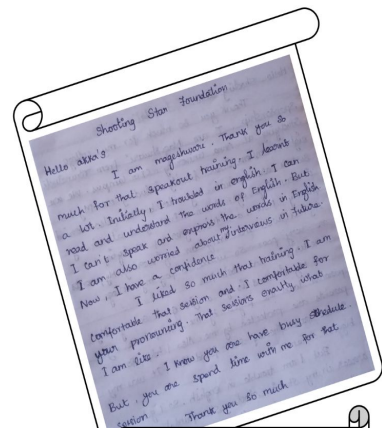 Shooting Star Foundation
Hello akka's
I am mageshwari. Thank you so
much for that speakout training. I learnt
a lot. Initially, I troubled in english. I can
read and understand the words of English. But
I can't speak and express the words in English
I am also worried about my interviews in Future.
Now, I have a confidence
I liked so much that training. I am
comfortable that session and I comfortable for
your pronouncing. That sessions exactly what
I am like.
I know you are have busy schedule
But, you are spend time with me for that
session. Thank you so much